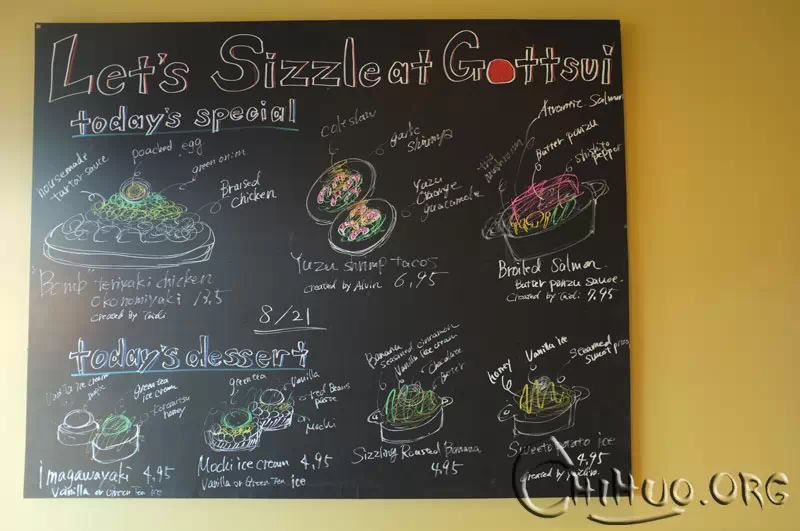 Let's Sizzle at Gottsui
today's special
housemade
tartar sauce
poached egg
green onion
Braised
chicken
"Bomb" teriyaki chicken
okonomiyaki 13.5
coleslaw
garlic
shrimps
Yuzu
orange
guacamole
Yuzu shrimp tacos
created by Alvin 6.95
Atlantic Salmon
Butter ponzu
mushroom
shishito
pepper
Broiled Salmon
Butter ponzu sauce
created by
7.95
8/21
today's dessert
Vanilla ice cream
Green tea
ice cream
honey
Imagawayaki 4.95
Vanilla or Green Tea ice
green tea
Vanilla
red beans
paste
Mochi
Mochi ice cream 4.95
Vanilla or Green Tea ice
Banana
seasoned cinnamon
Vanilla ice cream
chocolate
Butter
Sizzling Roasted Banana
4.95
honey
Vanilla ice
steamed
sweet
Sweet potato ice
4.95
created by
CHIHUO.ORG